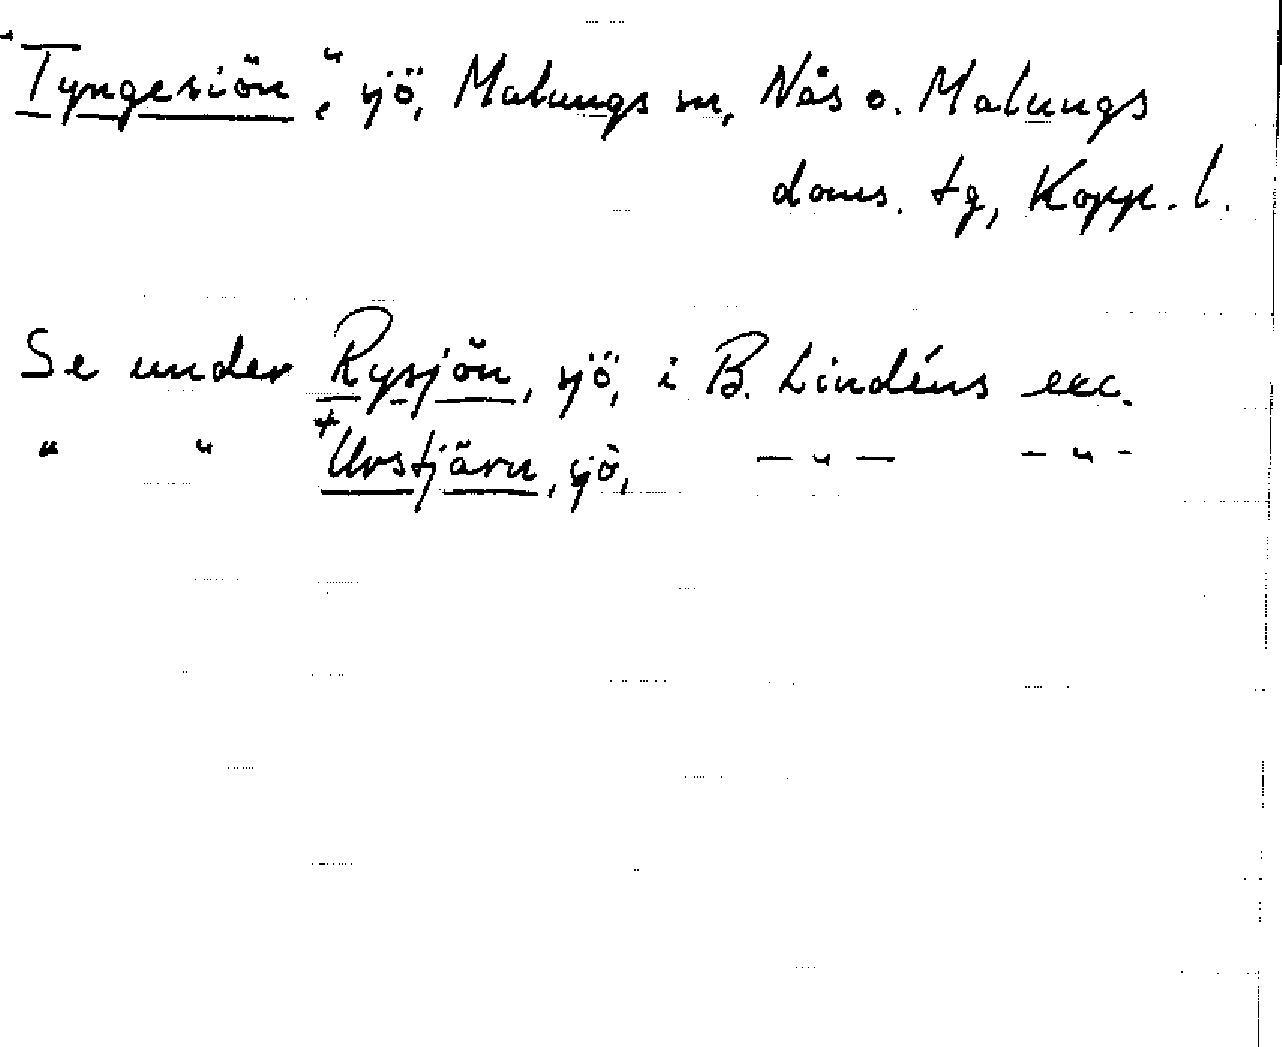 "Tyngesiön", sjö, Malungs sn, Nås o. Malungs
doms. tg, Kopp. l.
Se under Rysjön, sjö, i B. Lindéns exc.
" " +Urstjärn, sjö, — " — — " —